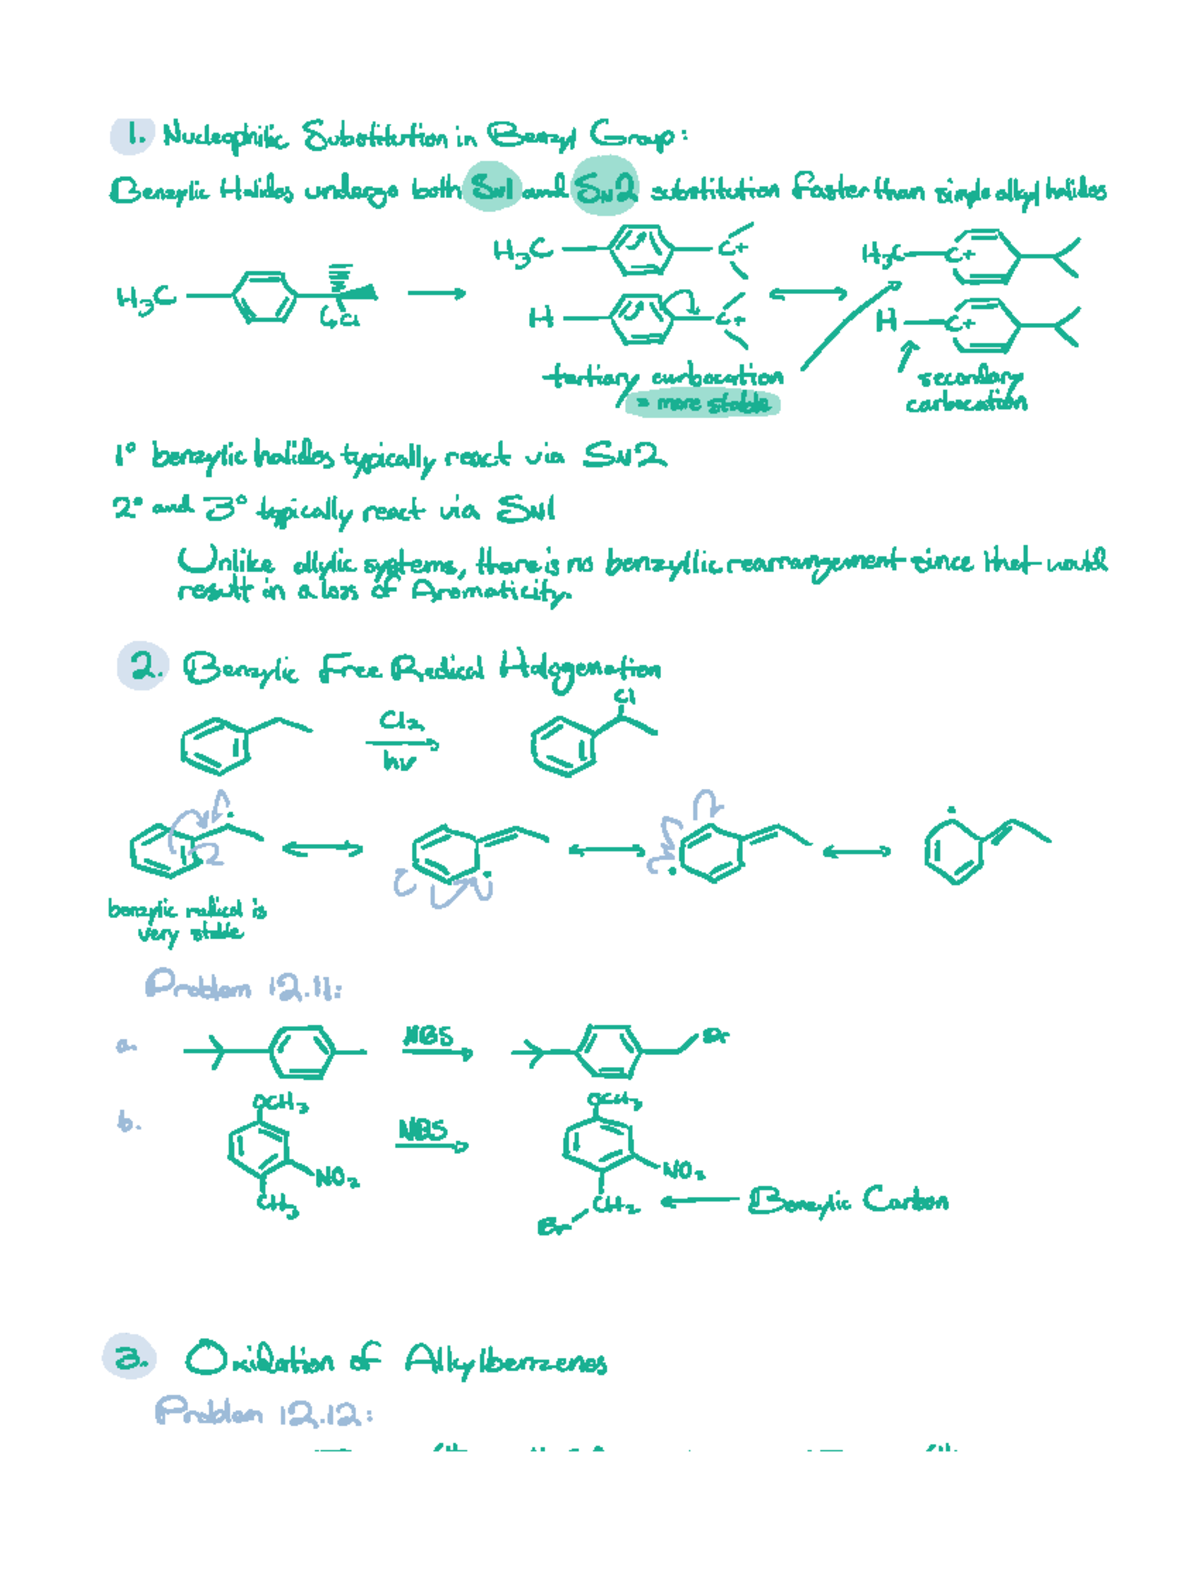 1. Nucleophilic Substitution in Benzyl Group:
Benzylic Halides undergo both SN1 and SN2 substitution faster than simple alkyl halides
H3C
Cl
H3C C+
H C+
H3C C+
H C+
tertiary carbocation
= more stable
secondary
carbocation
1° benzylic halides typically react via SN2
2° and 3° typically react via SN1
Unlike allylic systems, there is no benzyllic rearrangement since that would
result in a loss of Aromaticity.
2. Benzylic Free Radical Halogenation
Cl2
hv
Cl
benzylic radical is
very stable
Problem 12.11:
a. NBS Br
b. OCH3 NO2 CH3
NBS
OCH3 NO2 CH2 Br
Benzylic Carbon
3. Oxidation of Alkylbenzenes
Problem 12.12: